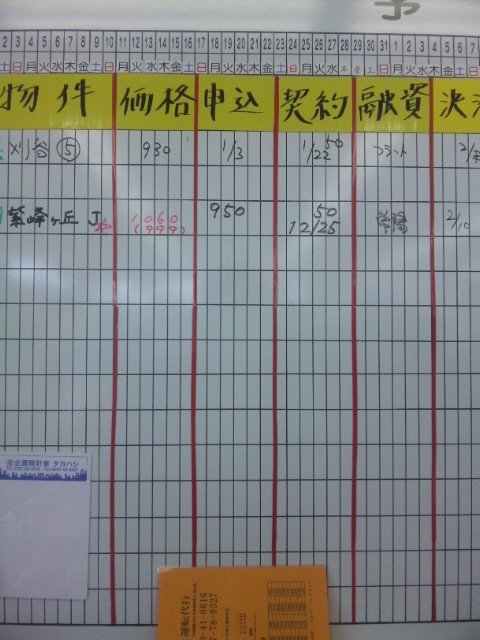 予
2 3 4 5 6 7 8 9 10 11 12 13 14 15 16 17 18 19 20 21 22 23 24 25 26 27 28 29 30 31 1 2 3 4 5 6 7
土 日 月 火 水 木 金 土 日 月 火 水 木 金 土 日 月 火 水 木 金 土 日 月 火 水 木 金 土 日 月 火 水 木 金 土 日
物件 価格 申込 契約 融資 決済
刈谷⑤ 930 1/3 1/22 50 フラット 2/末
紫峰ヶ丘 J 1060 (999) 950 50 12/25 常陽 2/10
(有)企画設計室 タカハシ
運転代行
41-0616
78-9527